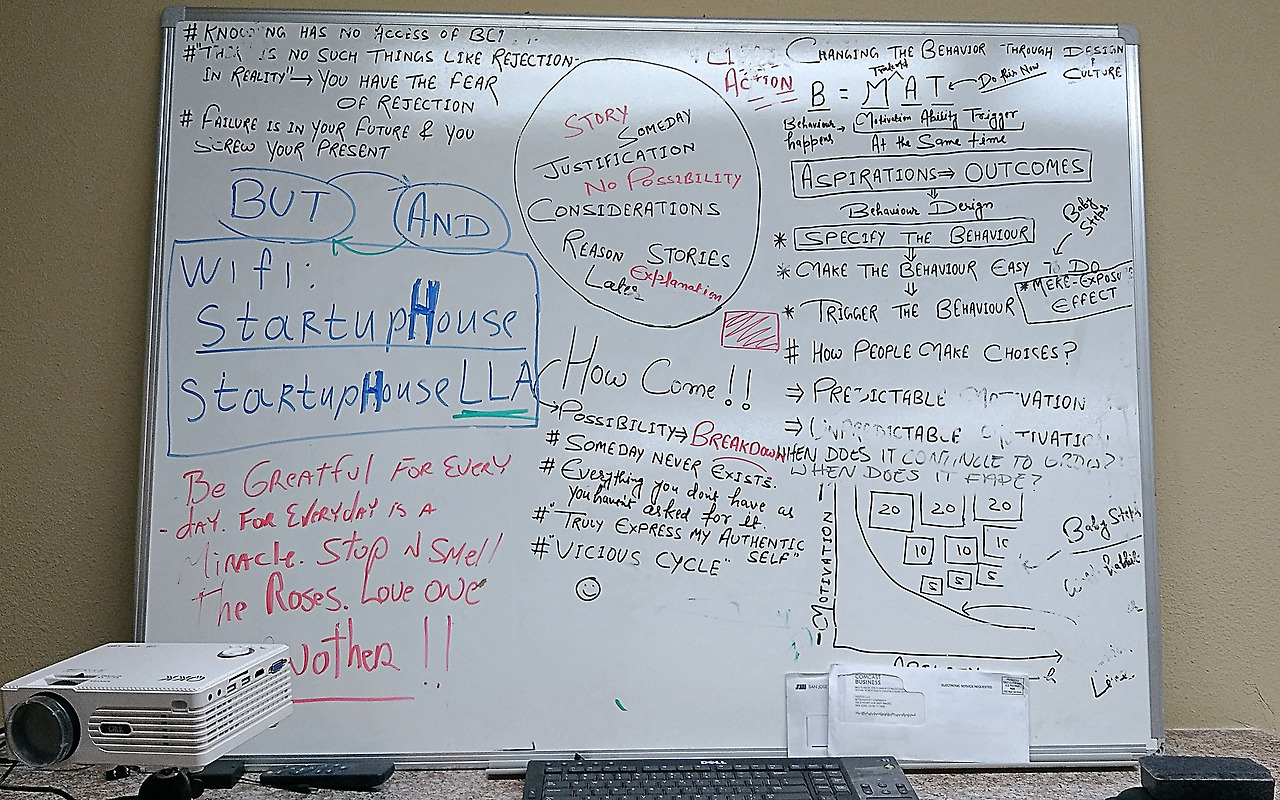 # KNOWING HAS NO ACCESS OF BC!
#"THERE IS NO SUCH THINGS LIKE REJECTION-
IN REALITY"→ YOU HAVE THE FEAR
OF REJECTION
# FAILURE IS IN YOUR FUTURE & YOU
SCREW YOUR PRESENT
BUT
AND
Wifi:
StartupHouse
StartupHouseLLA
Be GREATFUL FOR EVERY
- dAY. FOR EVERYDAY IS A
MIRACLE. STOP N SMELL
THE ROSES. LOVE ONE
ANOTHER !!
STORY
SOMEDAY
JUSTIFICATION
NO POSSIBILITY
CONSIDERATIONS
REASON STORIES
Explanation
Later
HOW COME!!
→POSSIBILITY→BREAKDOWN
# SOMEDAY NEVER EXISTS.
# Everything you don't have as
you haven't asked for it.
#"TRULY EXPRESS MY AUTHENTIC
SELF"
#"VICIOUS CYCLE"
L1
ACTION
CHANGING THE BEHAVIOR THROUGH DESIGN
& CULTURE
B = M A T ← Do this Now
Tradeoff
Behaviour → Motivation Ability Trigger
happens
At the Same time
ASPIRATIONS⇒ OUTCOMES
Behaviour Design
Baby
Steps
* SPECIFY THE BEHAVIOUR
* MAKE THE BEHAVIOUR EASY TO DO
* MERE-EXPOSURE
EFFECT
* TRIGGER THE BEHAVIOUR
# HOW PEOPLE MAKE CHOICES?
⇒ PREDICTABLE MOTIVATION
⇒ UNPREDICTABLE MOTIVATION
WHEN DOES IT CONTINUE TO GROW?
WHEN DOES IT FADE?
MOTIVATION
20 20 20
10 10 10
5 5 5
Baby Steps
COMCAST
BUSINESS
ELECTRONIC SERVICE REQUESTED
SAN JOSE
DELL